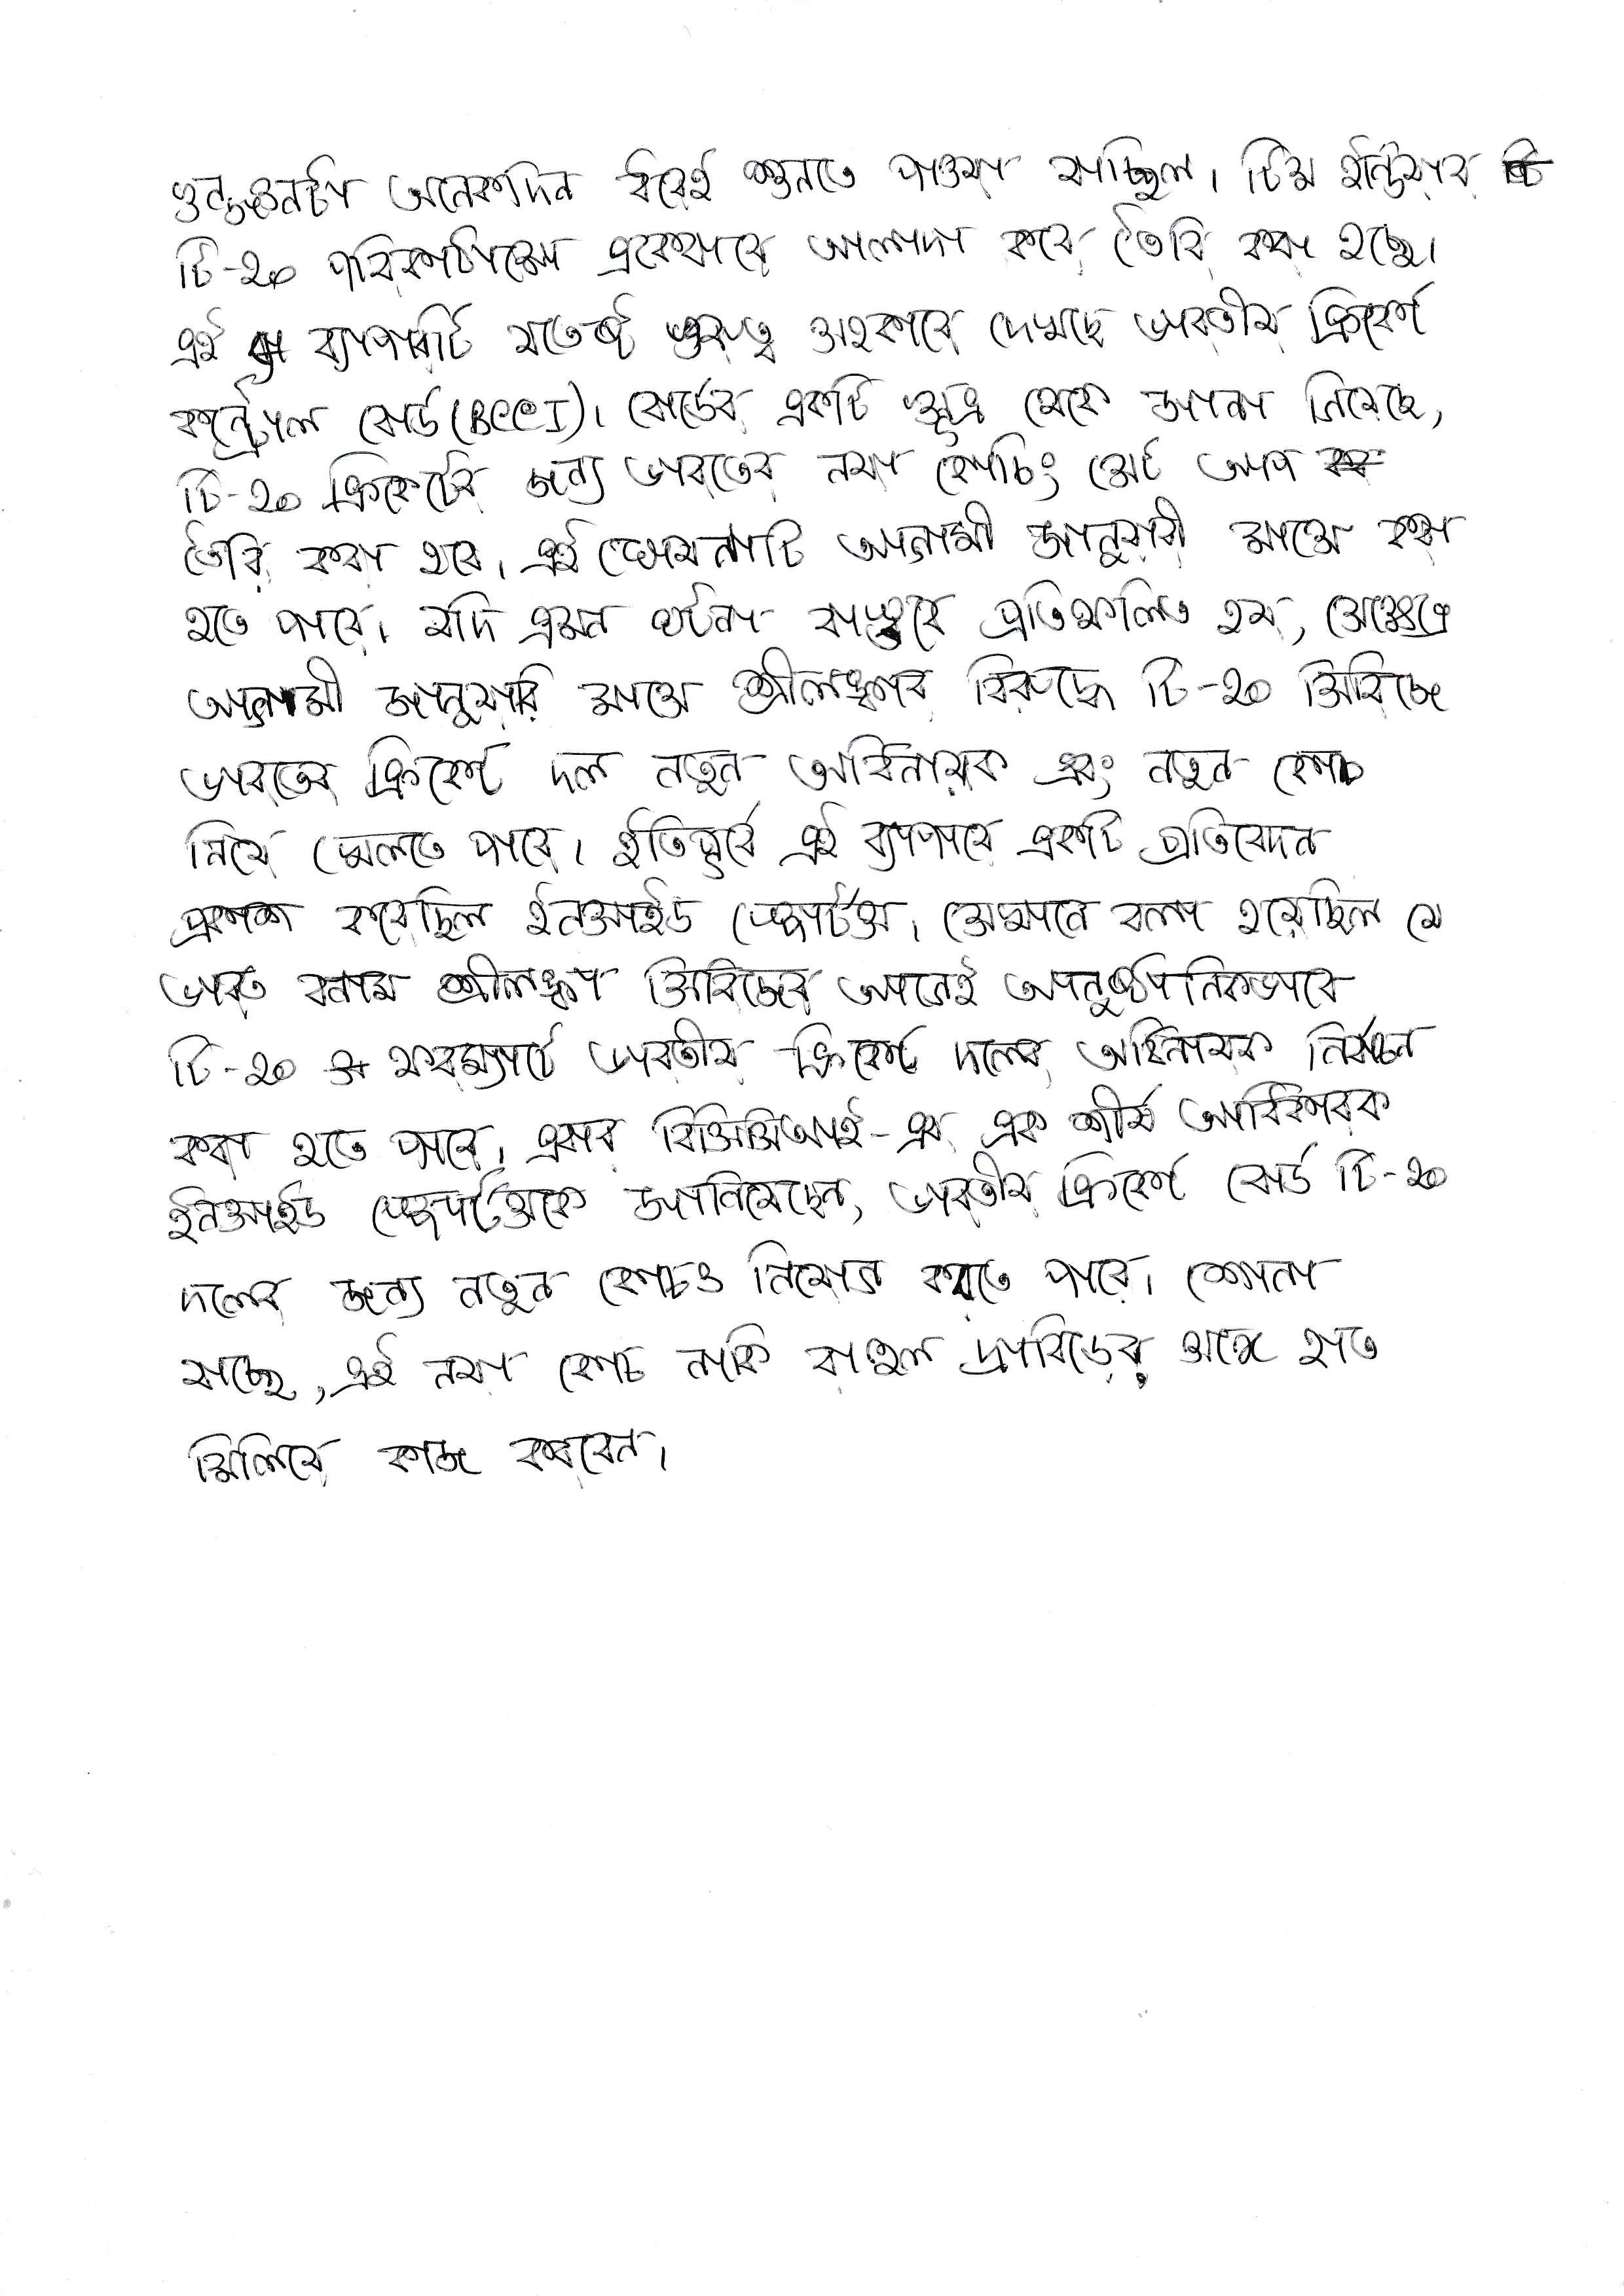 গুনগুনটা অনেকদিন ধরেই শুনতে পাওয়া যাচ্ছিল। টিম ইন্ডিয়ার
টি-২০ পরিকাঠামো একেবারে আলাদা করে তৈরি করা হচ্ছে।
এই ব্যাপারটি যথেষ্ট গুরুত্ব সহকারে দেখছে ভারতীয় ক্রিকেট
কন্ট্রোল বোর্ড (BCCI)। বোর্ডের একটি সূত্র থেকে জানা গিয়েছে,
টি-২০ ক্রিকেটের জন্য ভারতের নয়া কোচিং সেট আপ
তৈরি করা হবে। এই ঘোষণাটি আগামী জানুয়ারী মাসে করা
হতে পারে। যদি এমন ঘটনা বাস্তবে প্রতিফলিত হয়, সেক্ষেত্রে
আগামী জানুয়ারি মাসে শ্রীলঙ্কার বিরুদ্ধে টি-২০ সিরিজে
ভারতের ক্রিকেট দল নতুন অধিনায়ক এবং নতুন কোচ
নিয়ে খেলতে পারে। ইতিপূর্বে এই ব্যাপারে একটি প্রতিবেদন
প্রকাশ করেছিল ইনসাইড স্পোর্টস। সেখানে বলা হয়েছিল যে
ভারত বনাম শ্রীলঙ্কা সিরিজের আগেই আনুষ্ঠানিকভাবে
টি-২০ ফরম্যাটে ভারতীয় ক্রিকেট দলের অধিনায়ক নির্বাচন
করা হতে পারে। এবার বিসিসিআই-এর এক শীর্ষ আধিকারিক
ইনসাইড স্পোর্টসকে জানিয়েছেন, ভারতীয় ক্রিকেট বোর্ড টি-২০
দলের জন্য নতুন কোচও নিয়োগ করতে পারে। শোনা
যাচ্ছে, এই নয়া কোচ নাকি রাহুল দ্রাবিড়ের সঙ্গে হাত
মিলিয়ে কাজ করবেন।